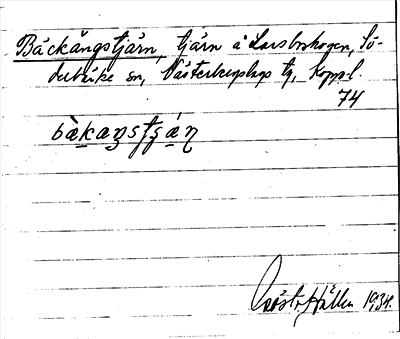 Bäckängstjärn, tjärn å Larsboskogen, Sö-
derbärke sn, Västerbergslags tg, Koppl.
74
bæ̀kaŋstʂǽɳ
Gösta Hállen 1934.